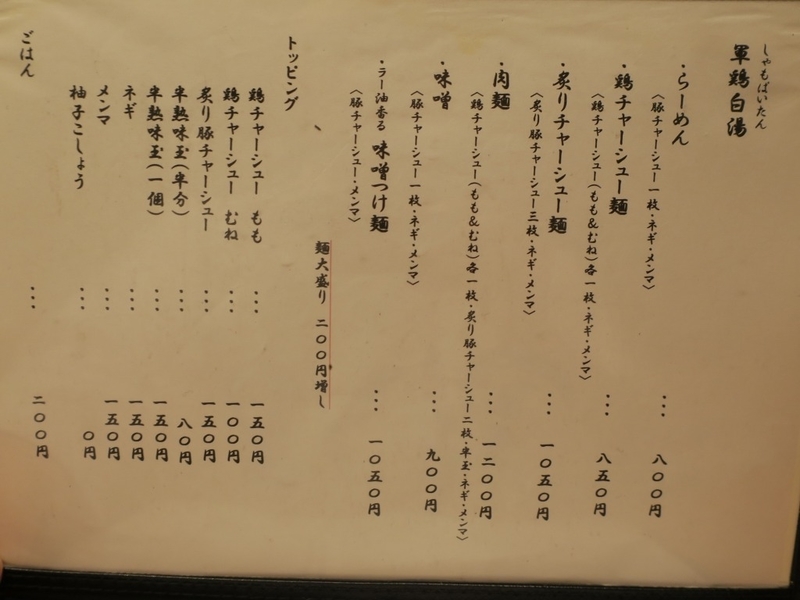 しゃもぱいたん
軍鶏白湯
・らーめん ・・・ 八〇〇円
〈豚チャーシュー一枚・ネギ・メンマ〉
・鶏チャーシュー麺 ・・・ 八五〇円
〈鶏チャーシュー(もも&むね)各一枚・ネギ・メンマ〉
・炙りチャーシュー麺 ・・・ 一〇五〇円
〈炙り豚チャーシュー三枚・ネギ・メンマ〉
・肉麺 ・・・ 一二〇〇円
〈鶏チャーシュー(もも&むね)各一枚・炙り豚チャーシュー二枚・半玉・ネギ・メンマ〉
・味噌 ・・・ 九〇〇円
〈豚チャーシュー一枚・ネギ・メンマ〉
・ラー油香る 味噌つけ麺 ・・・ 一〇五〇円
〈豚チャーシュー・メンマ〉
麺大盛り 二〇〇円増し
トッピング
鶏チャーシュー もも ・・・ 一五〇円
鶏チャーシュー むね ・・・ 一〇〇円
炙り豚チャーシュー ・・・ 一五〇円
半熟味玉(半分) ・・・ 八〇円
半熟味玉(一個) ・・・ 一五〇円
ネギ ・・・ 一五〇円
メンマ ・・・ 一五〇円
柚子こしょう ・・・ 〇円
ごはん ・・・ 二〇〇円